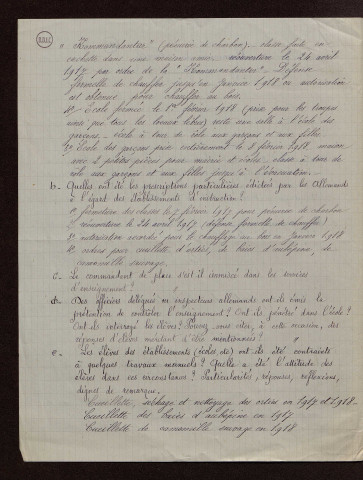 « Kommandantur » (pénurie de charbon) - classe faite en
cachette dans une maison amie. réouverture le 24 avril
1917 par ordre de la " Kommandantur " - Défense
formelle de chauffer jusqu'en Janvier 1918 où autorisation
est obtenue pour chauffage au bois.
4° École fermée le 1er février 1918 (prise pour les troupes
ainsi que tous les locaux libres) reste une salle à l'école des
garçons - école à tour de rôle aux garçons et aux filles
5° École des garçons prise entièrement le 8 février 1918. maison
avec 2 petites pièces pour mairie et école - classe à tour de
rôle aux garçons et aux filles jusqu'à l'évacuation.
b - Quelles ont été les prescriptions particulières édictées par les Allemands
à l'égard des établissements d'instruction ?
1° fermeture des classes le 7 février 1917 pour pénurie de charbon
2° réouverture le 24 avril 1917 (défense formelle de chauffer)
3° autorisation accordée pour le chauffage au bois en janvier 1918
4° ordres pour cueillette d'orties, de baies d'aubépine, de
camomille sauvage.
c - Le commandant de place s'est-il immiscé dans les services
d'enseignement ? "
d - Des officiers délégués ou inspecteurs allemands ont-ils émis la
prétention de contrôler l'enseignement ? Ont-ils pénétré dans l'école ?
Ont-ils interrogé les élèves ? Pouvez-vous citer, à cette occasion, des
réponses d'élèves méritant d'être mentionnées ? "
e - Les élèves des établissements (écoles etc) ont-ils été contraints
à quelques travaux manuels ? Quelle a été l'attitude des
élèves dans ces circonstances ? Particularités, réponses, réflexions,
dignes de remarque.
Cueillette, séchage et nettoyage des orties en 1917 et 1918.
Cueillette des baies d'aubépine en 1917
Cueillette de camomille sauvage en 1918